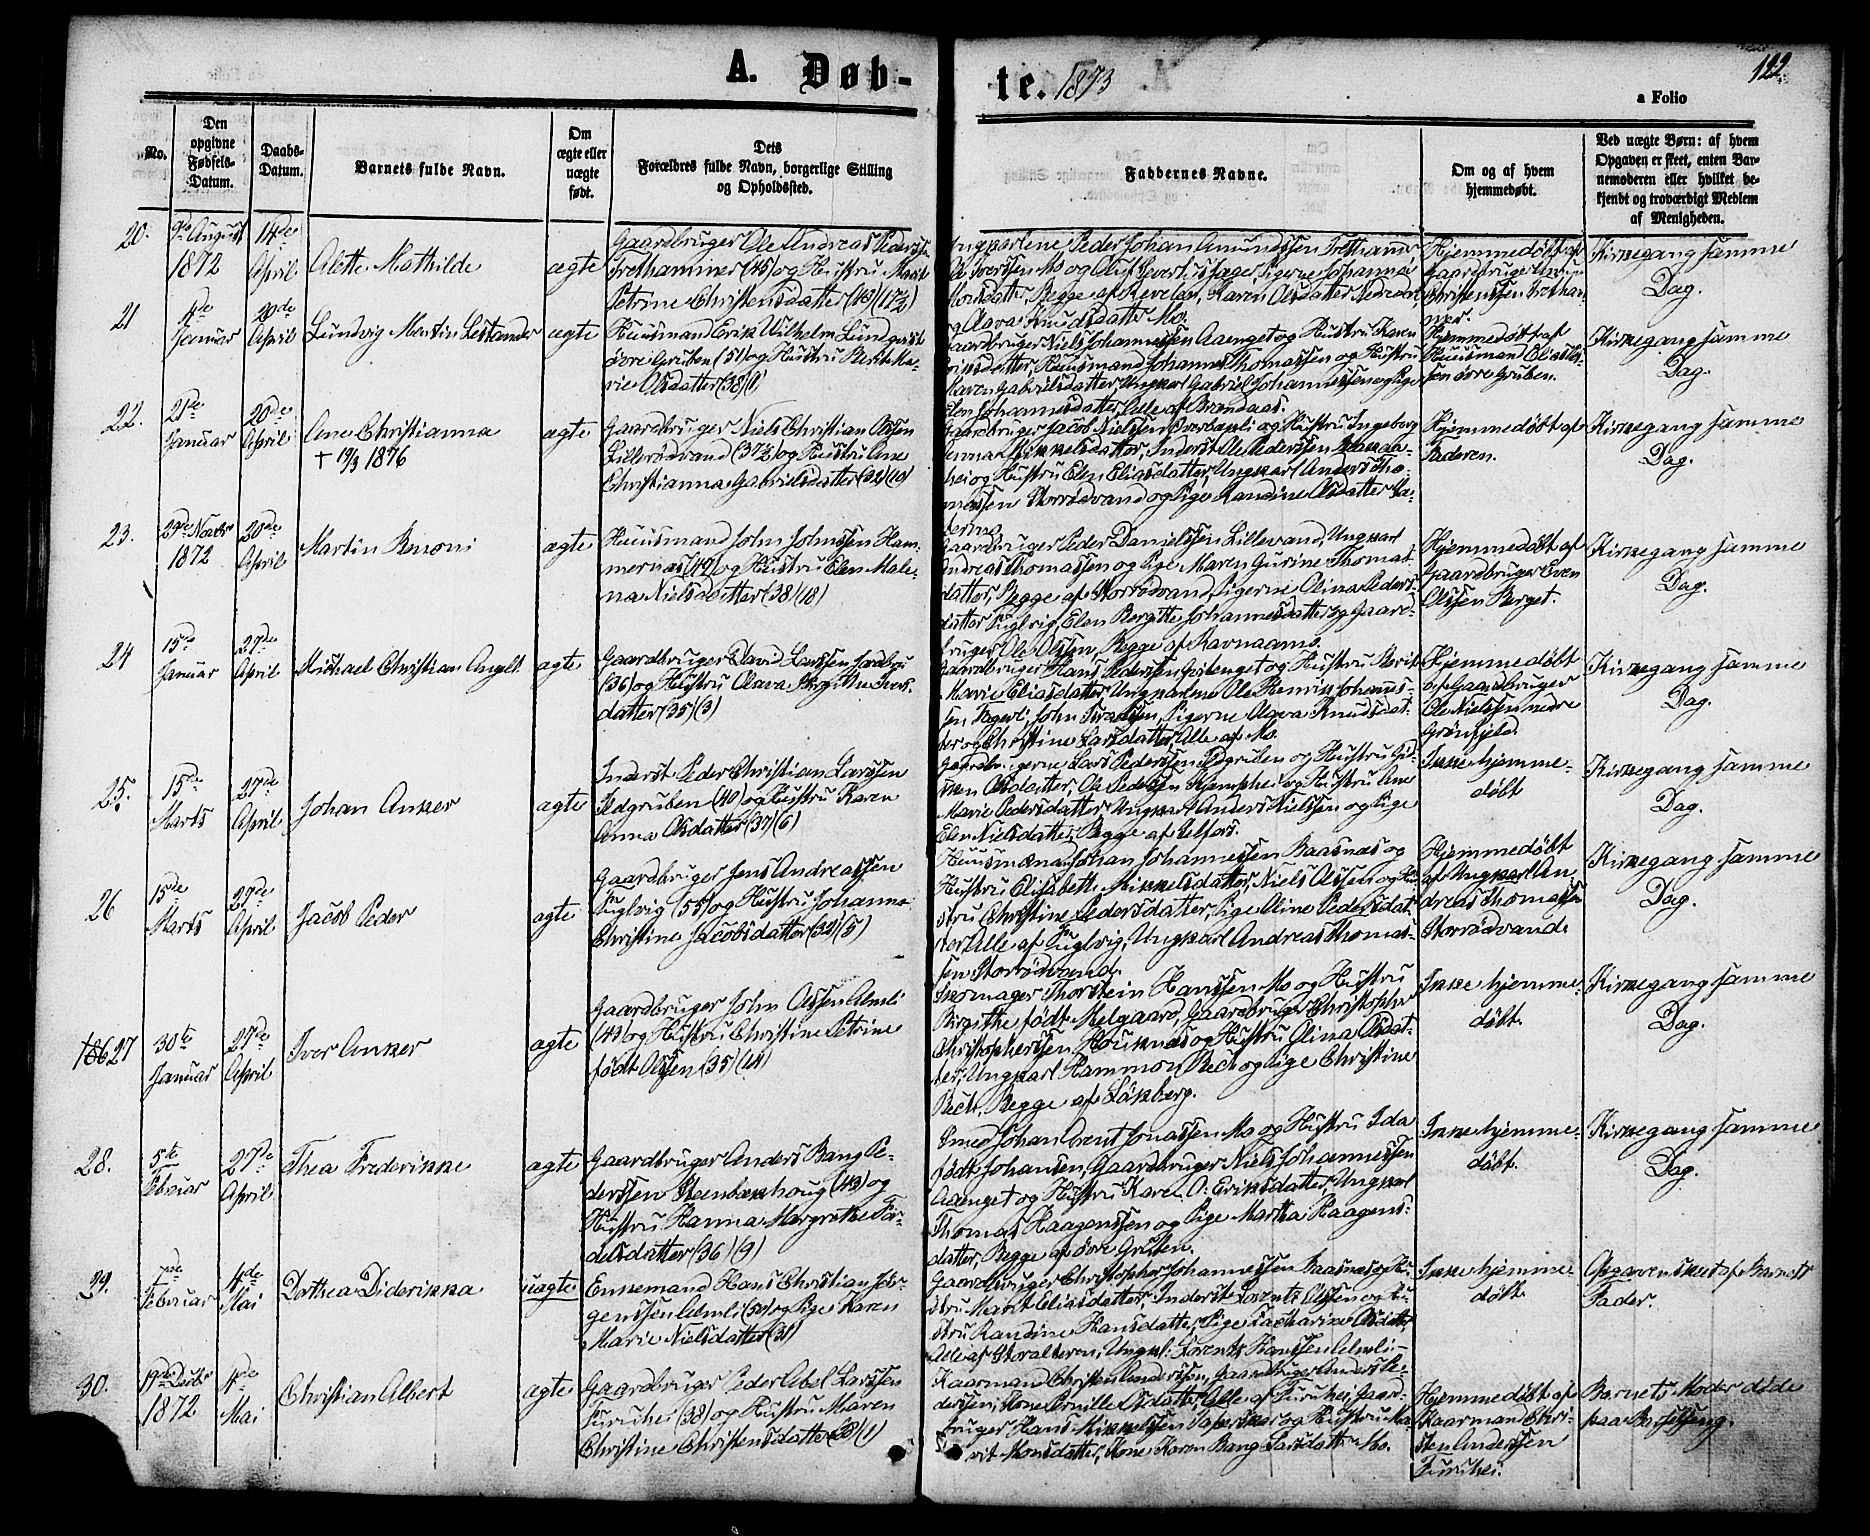 A. Døb-
te. 1873
122
a Folio
No.
Den
opgivne
Fødsels-
Datum.
Daabs-
Datum.
Barnets fulde Navn.
Om
ægte eller
uægte
født.
Dets
Forældres fulde Navn, borgerlige Stilling
og Opholdssted.
Faddernes Navne.
Om og af hvem
hjemmedøbt.
Ved uægte Børn: af hvem
Opgaven er skeet, enten Bar-
nemoderen eller hvilket be-
kjendt og troværdigt Medlem
af Menigheden.
20.
9de August
1872
14de
April
Alette Mathilde
ægte
Gaardbruger Ole Andreas Peders
Trethammer (45) og Hustru Marit
Petrine Christensdatter
Ungkarlene Peder Johan Amundssen Trethammer
Begge af Revelen, Karen Olsdatter
og Olava Knudsdatter Mo.
Hjemmedøbt af
Gaardbruger
Christenssen Tretham
mer.
Kirkegang samme
Dag.
21
4de
Januar
20de
April
Lundvig Martin
ægte
Huusmand Erik Wilhelm Lundqvist
övre Gruben (51) og Hustru Berith Ma-
rie Olsdatter (38)
Gaardbruger Niels Johannessen Aaenget og Hustru Karen
Eriksdatter, Huusmand Johannes Thomassen og Hustru
Maren Gabrielsdatter, Ungkarl Gabriel Johannessen og Pige
Elen Johannesdatter, Alle af Brendaas.
Hjemmedøbt af
Huusmand Elias
sen övre Gruben.
Kirkegang samme
Dag.
22.
21de
Januar
20de
April
Ane Christianna
† 19/3 1876
ægte
Gaardbruger Niels Christian Olssen
Lillerödvand (37½) og Hustru Ane
Christianna Gabrielsdatter (32) (10)
Gaardbruger Jacob Nielssen Overbaskli og Hustru Ingeborg
Mikkelsdatter, Inderst Ole Pederssen
og Hustru Elen Eliasdatter, Ungkarl Anders Tho-
massen Storrödvand og Pige Randine Olsdatter
Hjemmedøbt af
Faderen.
Kirkegang samme
Dag.
23.
29de Novbr
1872
20de
April
Martin Benoni
ægte
Huusmand John Johnssen Ham-
mernæs (49) og Hustru Elen Male-
na Nielsdatter (38) (18)
Gaardbruger Peder Danielssen Lillevand, Ungkarl
Andreas Thomassen og Pige Maren Gurine Thomas-
datter, Begge af Storrödvand, Pigerne Olina Peders-
datter Fuglvig, Elen Bergitte Johannesdatter og Gaard-
bruger Ole Olssen, Begge af Ravnaamo.
Hjemmedøbt af
Gaardbruger Even
Olssen Berget.
Kirkegang samme
Dag.
24
15de
Januar
27de
April
Michael Christian Angell
ægte
Gaardbruger David Larssen
(36) og Hustru Olava Birgitte
datter (35) (3)
Gaardbruger Hans Pederssen Grönenget og Hustru Berit
Marie Eliasdatter, Ungkarlene Ole Henrik Johannes-
sen Fagerli, John Pigerne Olava Knudsdat-
ter og Christine Larsdatter, Alle af Mo.
Hjemmedøbt
af Gaardbruger
Ole Nielssen nedre
Grönfjeld.
Kirkegang samme
Dag.
25.
15de
Marts
27de
April
Johan Anker
ægte
Inderst Peder Christian Larssen
Ildgruben (40) og Hustru Karen
Anna Olsdatter (37) (6)
Gaardbrugerne Lars Pederssen Ildgruben og Hustru Gid-
sken Olsdatter, Ole Pederssen Kjempehei og Hustru Ane
Marie Pedersdatter, Ungkarl Anders Nielssen og Pige
Elen Nielsdatter, Begge af Selfors.
Ikke hjemme-
døbt
Kirkegang samme
Dag.
26
15de
Marts
27de
April
Jacob Peder
ægte
Gaardbruger Jens Andreassen
Fuglvig (55) og Hustru Johanna
Christine Jacobsdatter (32) (5)
Huusmænd Johan Johannessen Baasnæs og
Hustru Elisabeth Mikkelsdatter, Niels Olssen og Hu-
stru Christine Pedersdatter, Pige Oline Pedersdat-
ter, Alle af Fuglvig, Ungkarl Andreas Thomas-
sen Storrödvand.
Hjemmedøbt
af Ungkarl An-
dreas Thomassen
Storrödvand.
Kirkegang samme
Dag.
27
30te
Januar
27de
April
Iver Anker
ægte
Gaardbruger John Olssen Almli
(43) og Hustru Christine Petrine
født Olssen (35) (14)
Skomager Thorstein Hanssen Mo og Hustru
Birgithe født Melgaard, Gaardbruger Christopher
Christopherssen Houknæs og Hustru Olina Olsdat-
ter, Ungkarl Hammon Bech og Pige Christine
Bech, Begge af Lökberg.
Ikke hjemme-
døbt.
Kirkegang samme
Dag.
28.
5te
Februar
27de
April
Thea Frederikke
ægte
Gaardbruger Anders Bang Pe-
derssen Steenbækhoug (43) og
Hustru Hanna Margrethe Tör-
delsdatter (36) (9)
Smed Johan Arent Jonassen Mo og Hustru Ida
født Johansen, Gaardbruger Niels Johannessen
Aaenget og Hustru Karen O. Eriksdatter, Ungkarl
Thomas Haagenssen og Pige Martha Haagens-
datter, Begge af övre Gruben.
Ikke hjemme-
døbt.
Kirkegang samme
Dag.
29.
7de
Februar
4de
Mai
Dorthea Diderikka
uægte
Enkemand Hans Christian Jör-
genssen Almli (50) og Pige Karen
Marie Nielsdatter (31)
Gaardbruger Christopher Johannessen Braanæs og Hu-
stru Marit Eliasdatter, Inderst Lorents Olssen og Hu-
stru Randine Hansdatter, Pige Catharina Olsdatter,
Alle af Storalteren, Ungk: Lorents Hanssen Almli.
Ikke hjemme
døbt.
Opgaven skeet af Barnets
Fader.
30.
19de Decbr
1872
4de
Mai
Christian Albert
ægte
Gaardbruger Peder Abel Larssen
Furuhei (38) og Hustru Maren
Christine Christensdatter (1)
Kaarmand Christen Anderssen, Gaardbruger Anders Pe-
derssen, Kone Pernille Olsdatter, Alle af Furuhei, Gaard-
bruger Hans Mikkelssen og Hustru Ma-
rit Monsdatter, Kone Karen Bang Larsdatter Mo.
Hjemmedøbt af
Kaarman Chri-
sten Anderssen
Furuhei.
Barnets Moder døde
paa Barselseng.